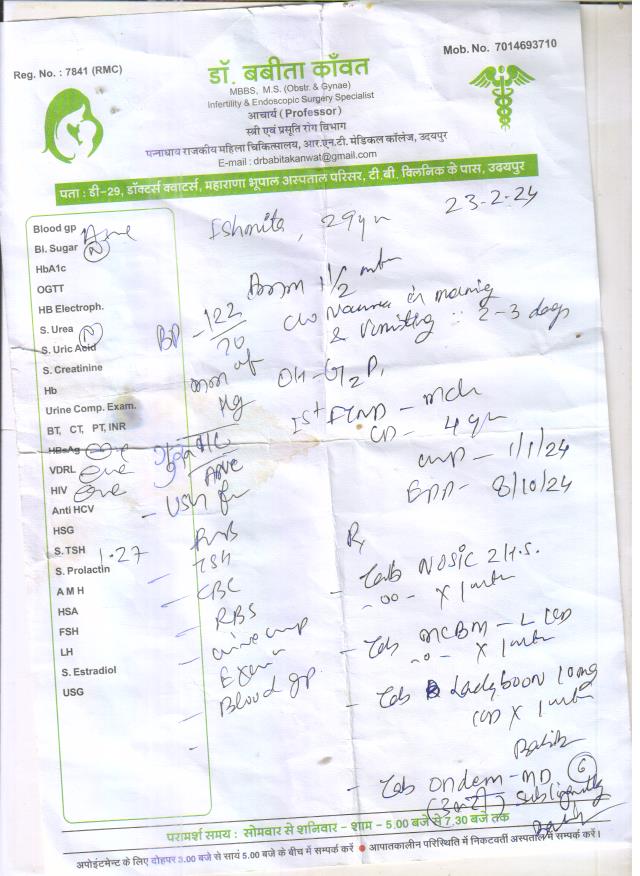 Reg. No. : 7841 (RMC)
Mob. No. 7014693710
डॉ. बबीता काँवत
MBBS, M.S. (Obstr. & Gynae)
Infertility & Endoscopic Surgery Specialist
आचार्य (Professor)
स्त्री एवं प्रसूति रोग विभाग
पन्नाधाय राजकीय महिला चिकित्सालय, आर.एन.टी. मेडिकल कॉलेज, उदयपुर
E-mail : drbabitakanwat@gmail.com
पता : डी-29, डॉक्टर्स क्वाटर्स, महाराणा भूपाल अस्पताल परिसर, टी.बी. क्लिनिक के पास, उदयपुर
23-2-24
Ishmita, 29yr
Blood gp
Bl. Sugar N
HbA1c
OGTT
HB Electroph.
S. Urea N
S. Uric Acid
S. Creatinine
Hb
Urine Comp. Exam.
BT, CT, PT, INR
HBsAg
VDRL
HIV
Anti HCV
HSG
S. TSH 1.27
S. Prolactin
A M H
HSA
FSH
LH
S. Estradiol
USG
1 1/2 mth
BP - 122/70 mm of Hg
c/o Nausea in morning
& Vomiting :: 2-3 days
OH - G2P1
Ist FTND - mch
4 yr
LMP - 1/1/24
EDD - 8/10/24
USG
TSH
CBC
RBS
urine comp
Exam
Blood gp.
Rx
- Tab NOSIC 2 H.S.
-oo- x 1 mth
- Tab MCBM-L
-o- x 1 mth
- Tab Ladyboon 10mg
OD x 1 mth
- Tab Ondem-MD 6
Sublingually
परामर्श समय : सोमवार से शनिवार - शाम - 5.00 बजे से 7.30 बजे तक
अपोइंटमेन्ट के लिए दोपहर 3.00 बजे से सायं 5.00 बजे के बीच में सम्पर्क करें ● आपातकालीन परिस्थिति में निकटवर्ती अस्पताल में सम्पर्क करें।